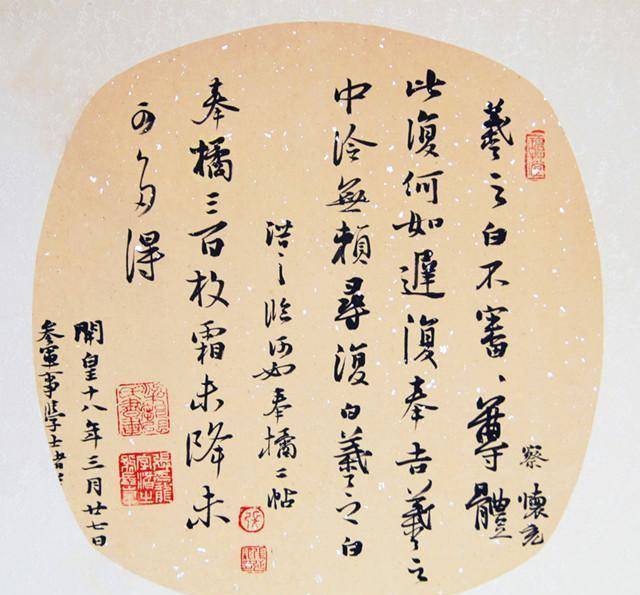 察懷充
羲之白不審、尊體
比復何如遲復奉告羲之
中冷無賴尋復白羲之白
浩之臨何如奉橘二帖
奉橘三百枚霜未降未
可多得
開皇十八年三月廿七日
參軍事學士諸